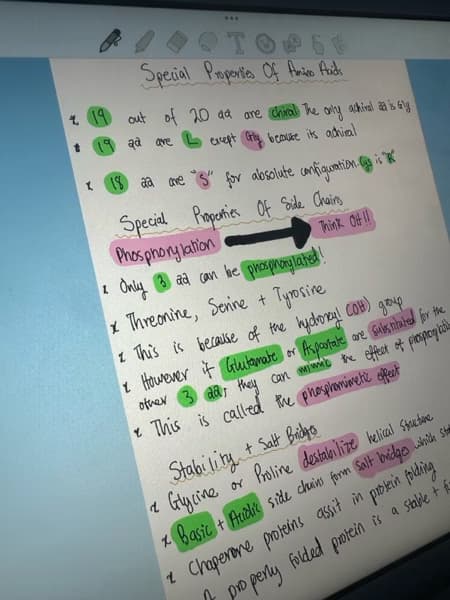 Special Properties Of Amino Acids
19 out of 20 aa are chiral The only achiral aa is Gly
19 aa are L except Gly because its achiral
18 aa are "S" for absolute configuration. Cys is "R"
Special Properties Of Side Chains
Phosphorylation Think OH!!
Only 3 aa can be phosphorylated!
Threonine, Serine + Tyrosine
This is because of the hydroxy (OH) group
However if Glutamate or Aspartate are substituted for the
other 3 aa, they can mimic the effect of
This is called the phosphomimetic effect
Stability + Salt Bridges
Glycine or Proline destabilize helical structure
Basic + Acidic side chains form salt bridges which
Chaperone proteins assit in protein folding
A properly folded protein is a stable +